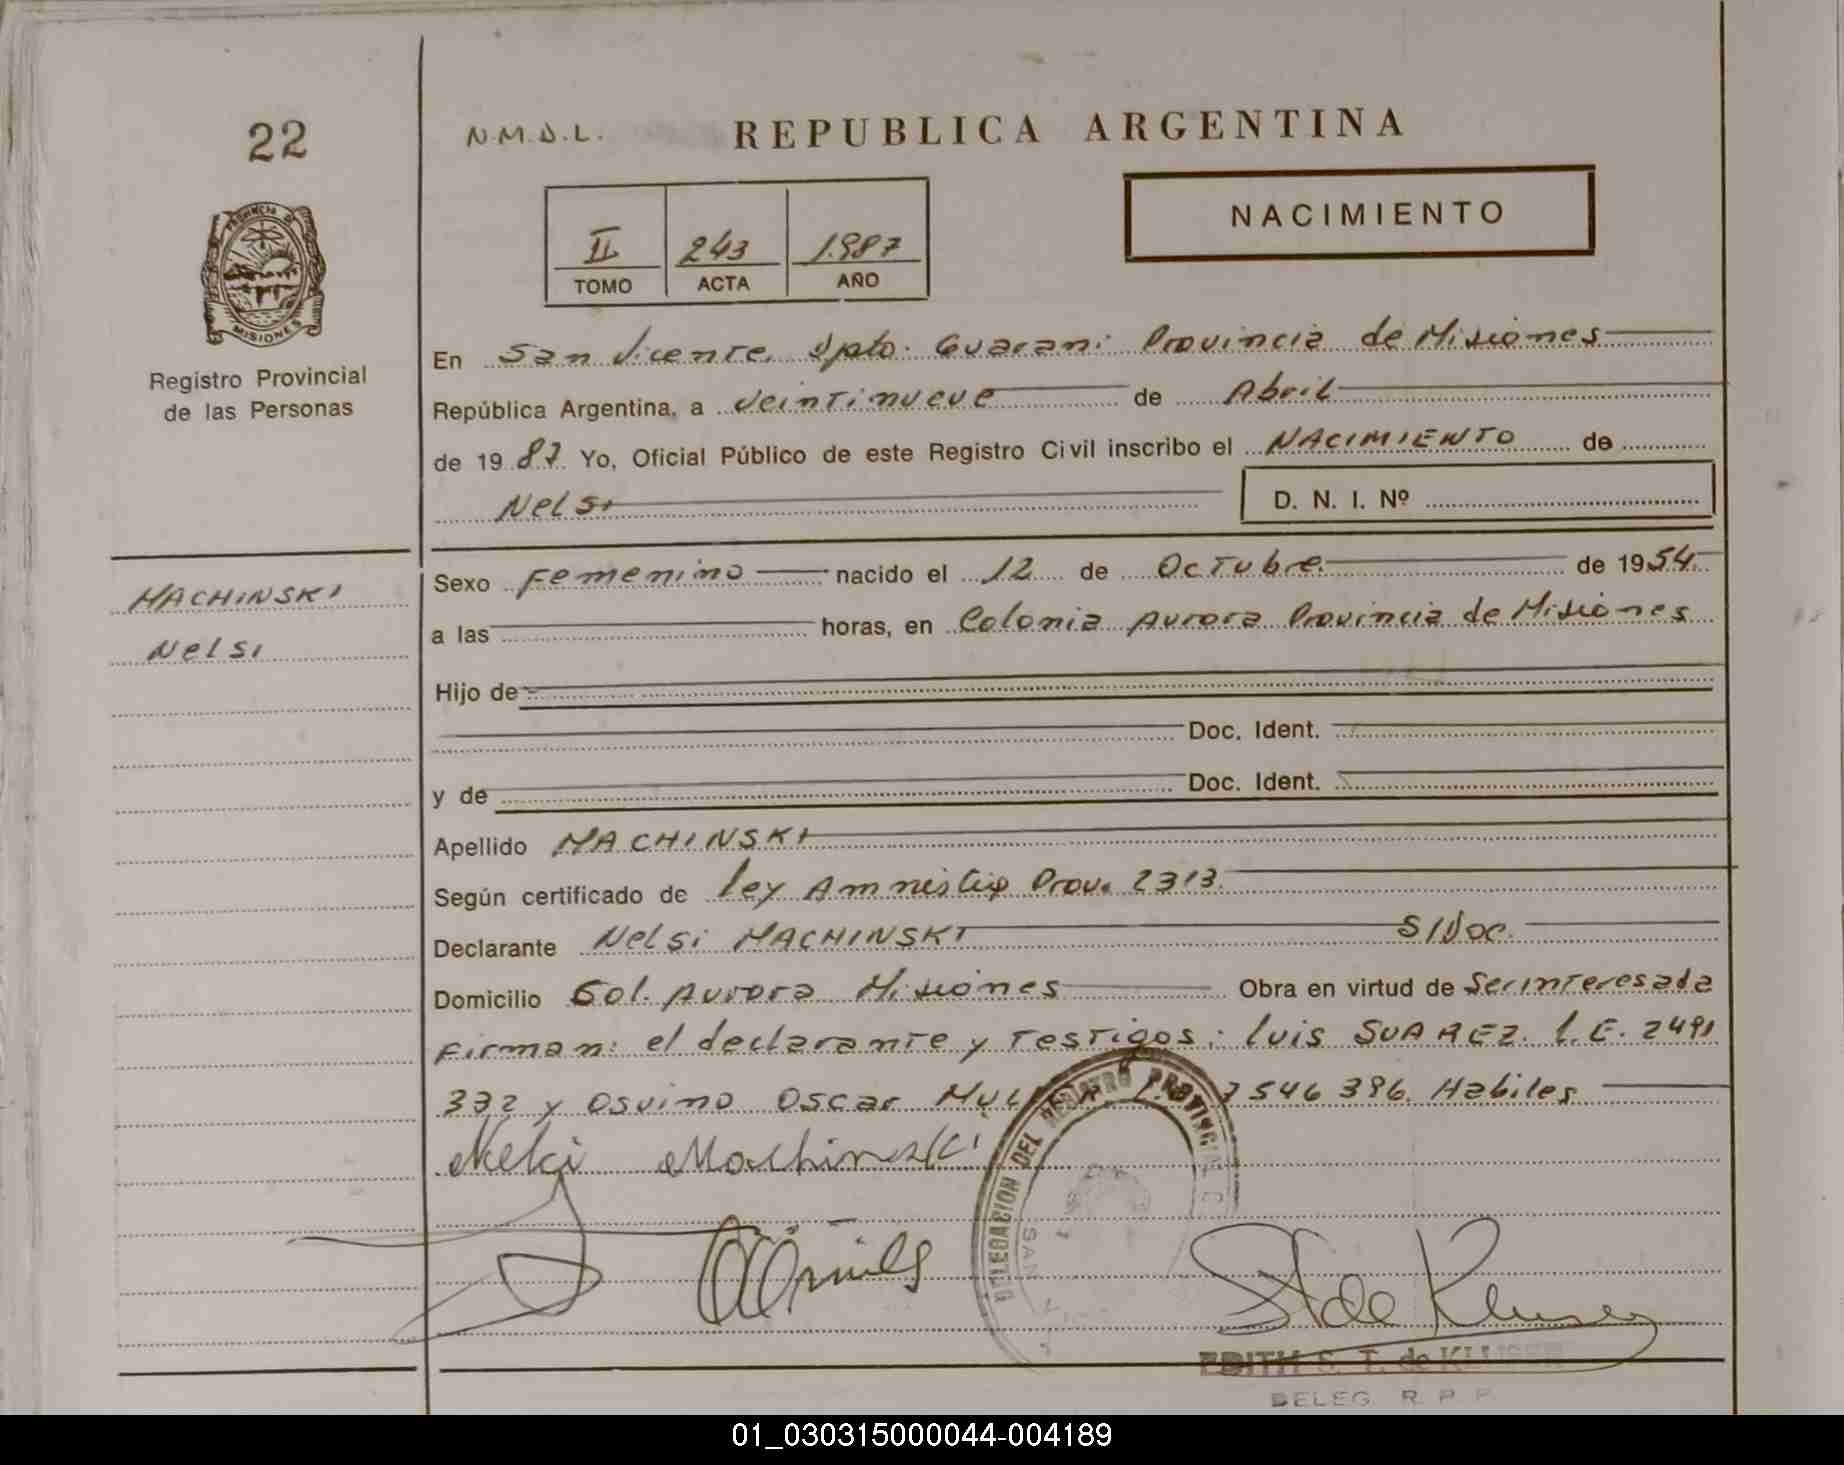 22
N.M.D.L.
REPUBLICA ARGENTINA
NACIMIENTO
II 243 1.987
TOMO ACTA AÑO
PROVINCIA DE
MISIONES
Registro Provincial
de las Personas
En San Vicente. Dpto. Guarani Provincia de Misiones
República Argentina, a veintinueve de Abril
de 1987. Yo, Oficial Público de este Registro Civil inscribo el NACIMIENTO de
Nelsi
D. N. I. Nº
MACHINSKI
Nelsi
Sexo Femenino nacido el 12 de Octubre de 1954
a las horas, en Colonia Aurora Provincia de Misiones
Hijo de
Doc. Ident.
y de Doc. Ident.
Apellido MACHINSKI
Según certificado de ley Amnistia Prov. 2313
Declarante Nelsi MACHINSKI S/Doc.
Domicilio Col. Aurora Misiones Obra en virtud de Ser interesada
Firman: el declarante y Testigos: Luis SUAREZ. L.E. 2491
332 y Osvino Oscar 7546396. Habiles
Nelci Machinski
DELEGACION DEL REGISTRO PROVINCIAL
SAN
S T de Kluser
EDITH S. T. de KLUSER
DELEG. R. P. P.
01_030315000044-004189